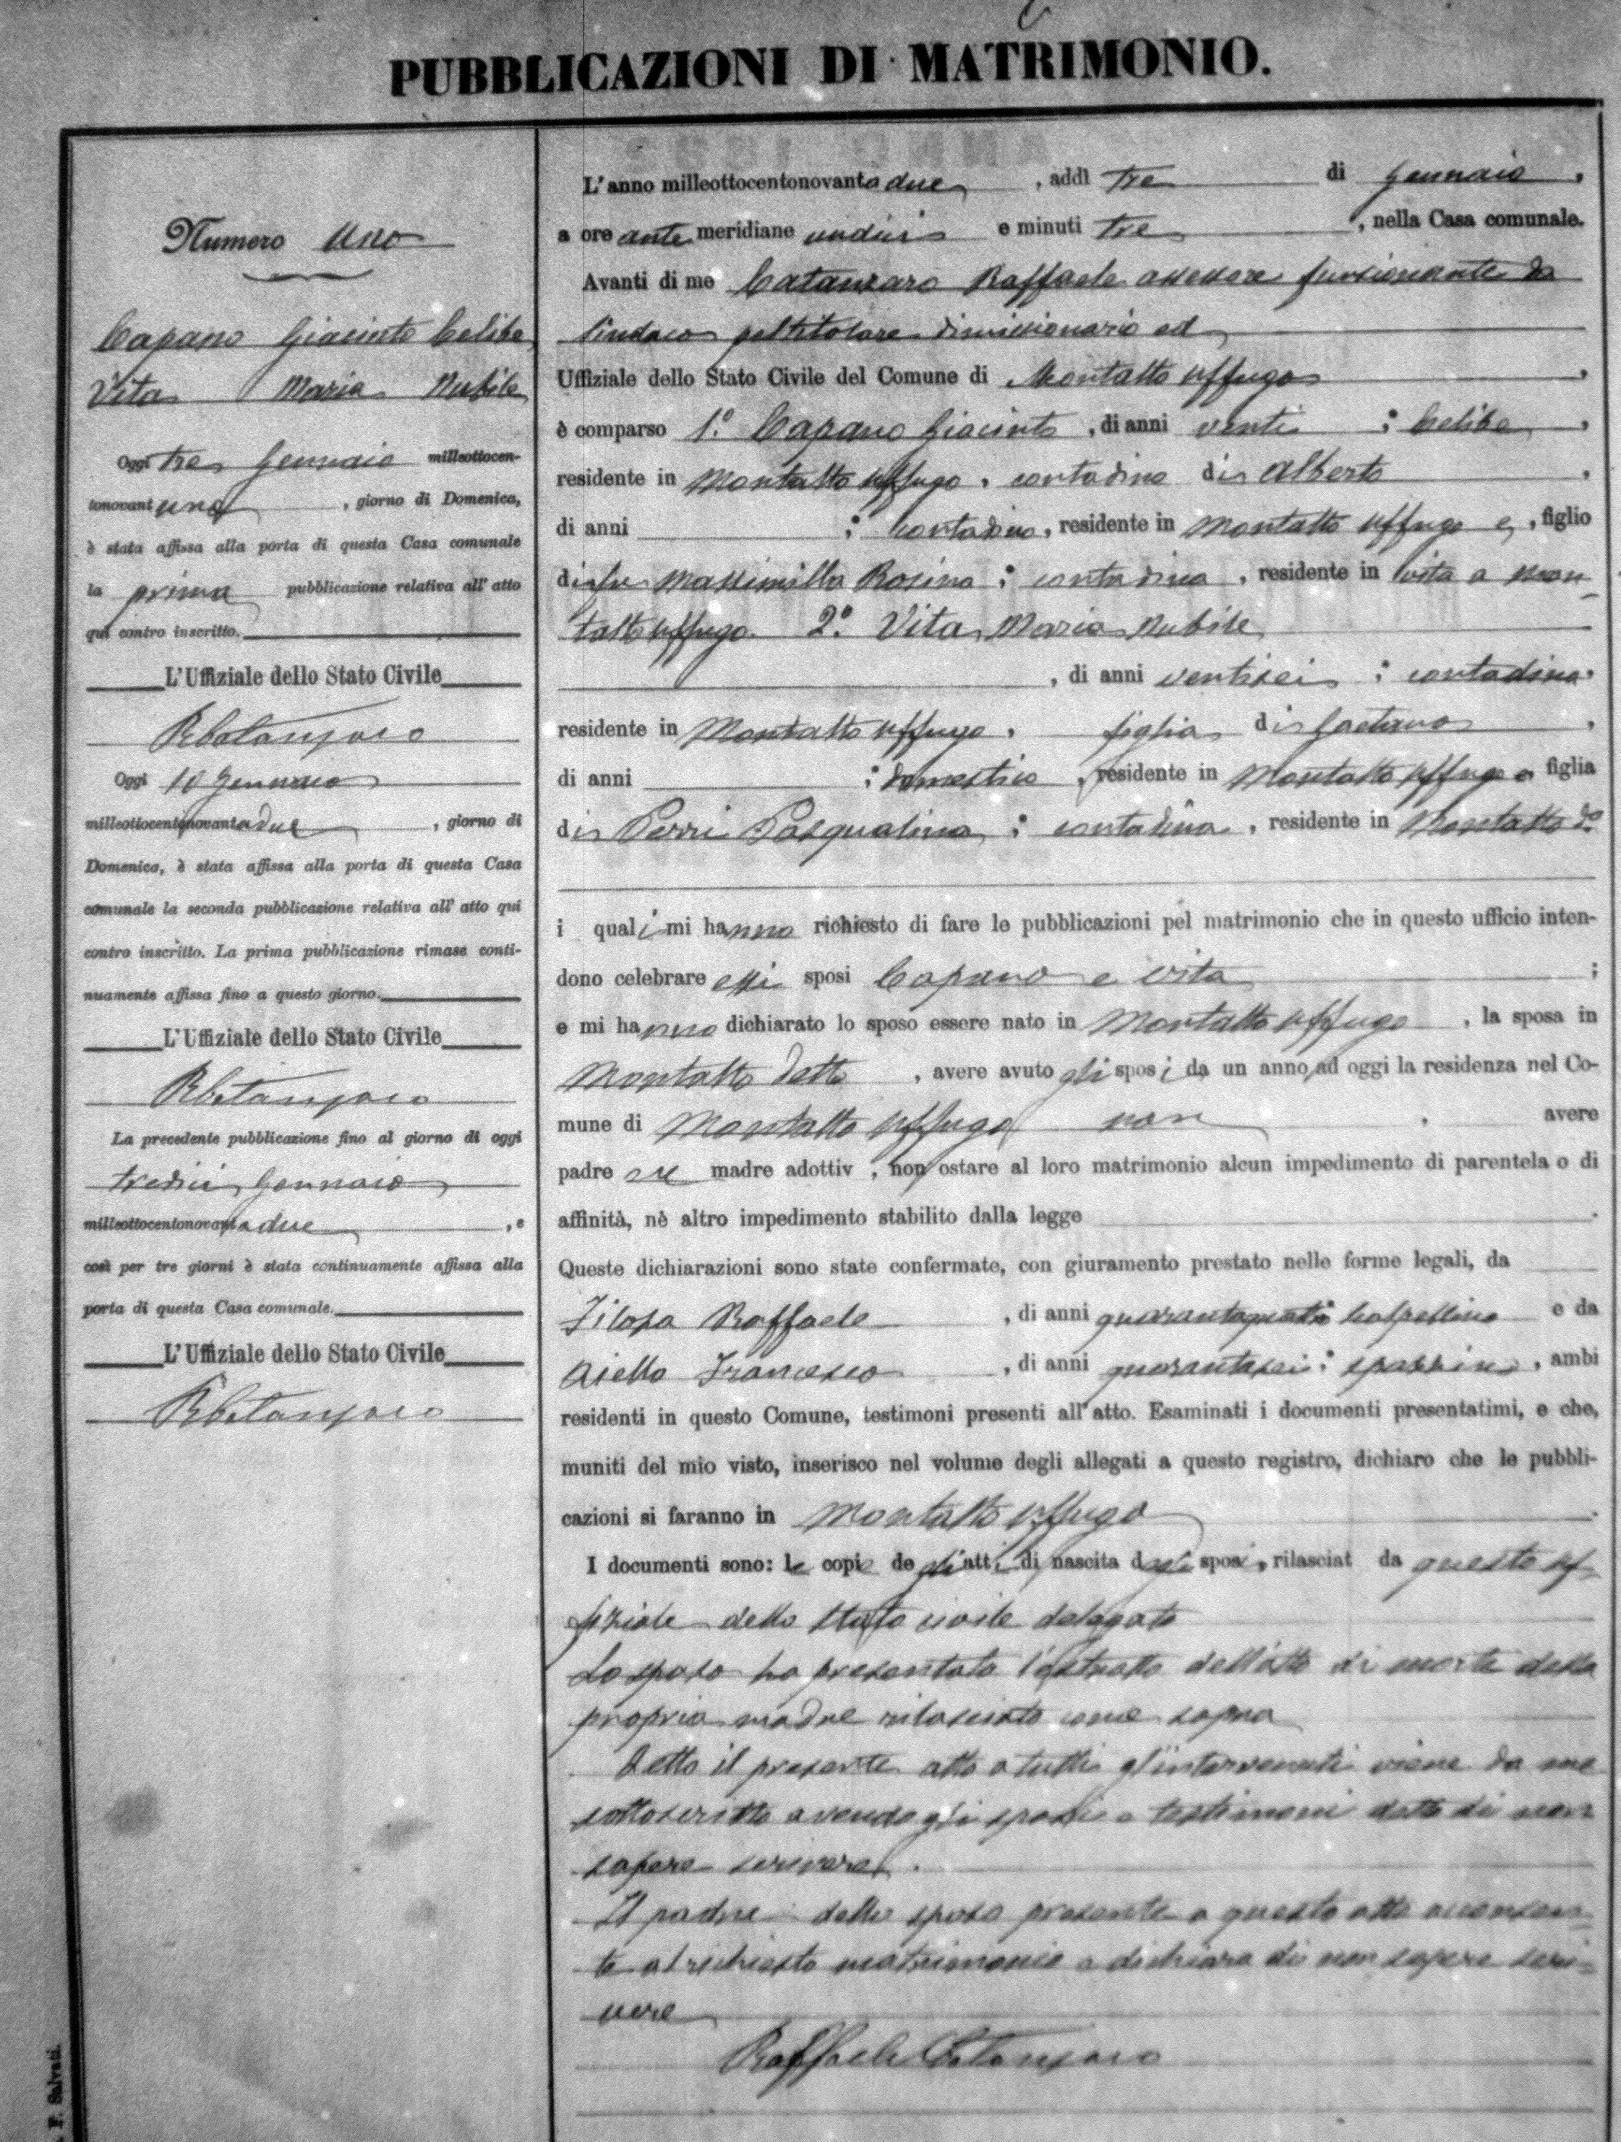 PUBBLICAZIONI DI MATRIMONIO.
Numero uno
Capano Giacinto Celibe
Vita Maria Nubile
Oggi tre Gennaio milleottocen-
tonovant uno, giorno di Domenica,
è stata affissa alla porta di questa Casa comunale
la prima pubblicazione relativa all' atto
qui contro inscritto.
L'Uffiziale dello Stato Civile
RCatanzaro
Oggi 10 Gennaio
milleottocentonovantadue, giorno di
Domenica, è stata affissa alla porta di questa Casa
comunale la seconda pubblicazione relativa all' atto qui
contro inscritto. La prima pubblicazione rimase conti-
nuamente affissa fino a questo giorno.
L'Uffiziale dello Stato Civile
RCatanzaro
La precedente pubblicazione fino al giorno di oggi
tredici Gennaio
milleottocentonovantadue, e
così per tre giorni è stata continuamente affissa alla
porta di questa Casa comunale.
L'Uffiziale dello Stato Civile
RCatanzaro
F. Salvati.
L'anno milleottocentonovantadue, addì tre di Gennaio,
a ore ante meridiane undici e minuti tre, nella Casa comunale.
Avanti di me Catanzaro Raffaele assessore funzionante da
Sindaco pel titolare dimissionario ed
Uffiziale dello Stato Civile del Comune di Montalto Uffugo,
è comparso 1.º Capano Giacinto, di anni venti; Celibe,
residente in Montalto Uffugo, contadino di Alberto,
di anni ; contadino, residente in Montalto Uffugo e, figlio
di fu Massimilla Rosina; contadina, residente in vita a Mon
talto Uffugo. 2.º Vita Maria Nubile
, di anni ventisei; contadina
residente in Montalto Uffugo, figlia di Gaetano,
di anni ; domestico, residente in Montalto Uffugo e figlia
di Perri Pasqualina; contadina, residente in Montalto do
i quali mi hanno richiesto di fare le pubblicazioni pel matrimonio che in questo ufficio inten-
dono celebrare essi sposi Capano e Vita;
e mi hanno dichiarato lo sposo essere nato in Montalto Uffugo, la sposa in
Montalto detto, avere avuto gli sposi da un anno ad oggi la residenza nel Co-
mune di Montalto Uffugo non avere
padre ne madre adottiv , non ostare al loro matrimonio alcun impedimento di parentela o di
affinità, nè altro impedimento stabilito dalla legge .
Queste dichiarazioni sono state confermate, con giuramento prestato nelle forme legali, da
Filosa Raffaele, di anni quarantaquattro Scalpellino e da
Aiello Francesco, di anni quarantasei; spazzino, ambi
residenti in questo Comune, testimoni presenti all'atto. Esaminati i documenti presentatimi, e che,
muniti del mio visto, inserisco nel volume degli allegati a questo registro, dichiaro che le pubbli-
cazioni si faranno in Montalto Uffugo.
I documenti sono: le copie de gli atti di nascita degli sposi, rilasciat da questo uf
fiziale dello stato civile delegato
Lo sposo ha presentato l'estratto dell'atto di morte della
propria madre rilasciato come sopra
Letto il presente atto a tutti gl'intervenuti viene da me
sottoscritto avendo gli sposi e testimoni detto di non
sapere scrivere.
Il padre dello sposo presente a questo atto acconsen
te al richiesto matrimonio e dichiara di non sapere scri
vere
Raffaele Catanzaro